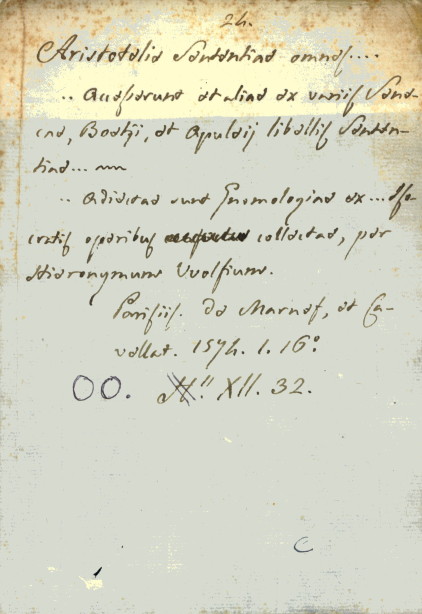 24.
Aristotelis Sententiae omnes....
.. Accesserunt et aliae ex variis Sene-
cae, Boetij, et Apuleij libellis Senten-
tiae...
.. Adiectae sunt Gnomologiae ex... Iso-
cratis operibus collectae, per
Hieronymum Vvolfium.
Parisiis. De Marnef, et Ca-
vellat. 1574. 1. 16.º
OO. XII. 32.